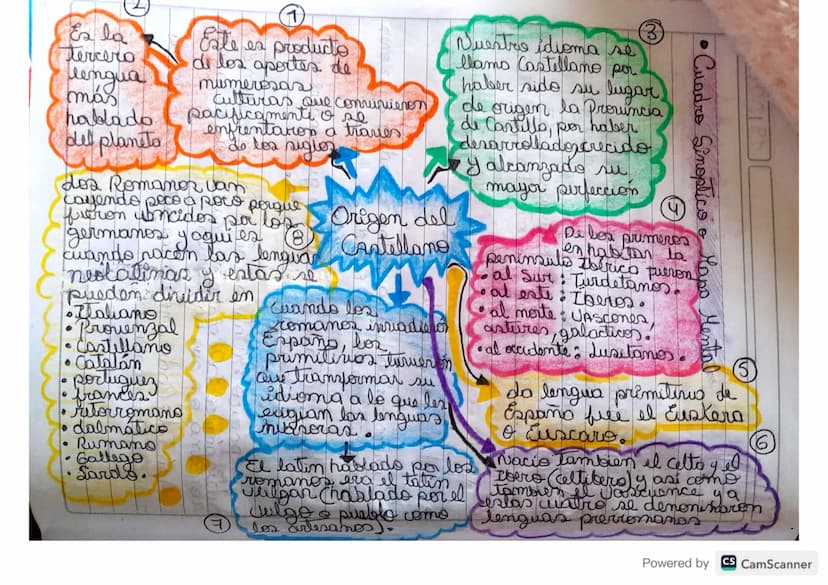 • Cuadro Sinoptico o Mapa Mental
Origen del
Castellano
1
Este es producto
de los aportes de
numerosas
culturas que convivieron
pacificamente o se
enfrentaron a traves
de los siglos
2
Es la
tercera
lengua
más
hablado
del planeta
3
Nuestro idioma se
llama Castellano por
haber sido su lugar
de origen la Provincia
de Castilla, por haber
desarrollado, crecido
y alcanzado su
mayor perfeccion
4
De los primeros
en habitar la
peninsula Ibérica fueron
• al sur: Turdetanos.
• al este: Iberos.
• al norte: vascones,
astures, galacticos.
• al occidente: Lusitanos.
5
La lengua primitiva de
España fue el Euskera
o Euscaro.
6
Nacio tambien el Celta y el
Ibero (celtibero) y asi como
tambien el vascuence y a
estas cuatro se denominaron
lenguas prerromanas
Cuando los
romanos invadieron
España, los
primitivos tuvieron
que transformar su
idioma a lo que les
exigian las lenguas
7
El latin hablado por los
romanos era el latin
vulgar (hablado por el
vulgo o pueblo como
los artesanos).
8
Los Romanos van
cayendo poco a poco porque
fueron vencidos por los
germanos y aqui es
cuando nacen las lenguas
neolatinas y estas se
pueden dividir en
• Italiano
• Provenzal
• Castellano
• Catalán
• portugues
• francés
• ritorromano
• dalmático
• Rumano
• Gallego
• Sardo.
Powered by CS CamScanner